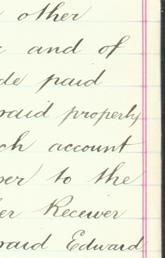 other
and of
de paid
said property
ch account
per to the
er Receiver
said Edward